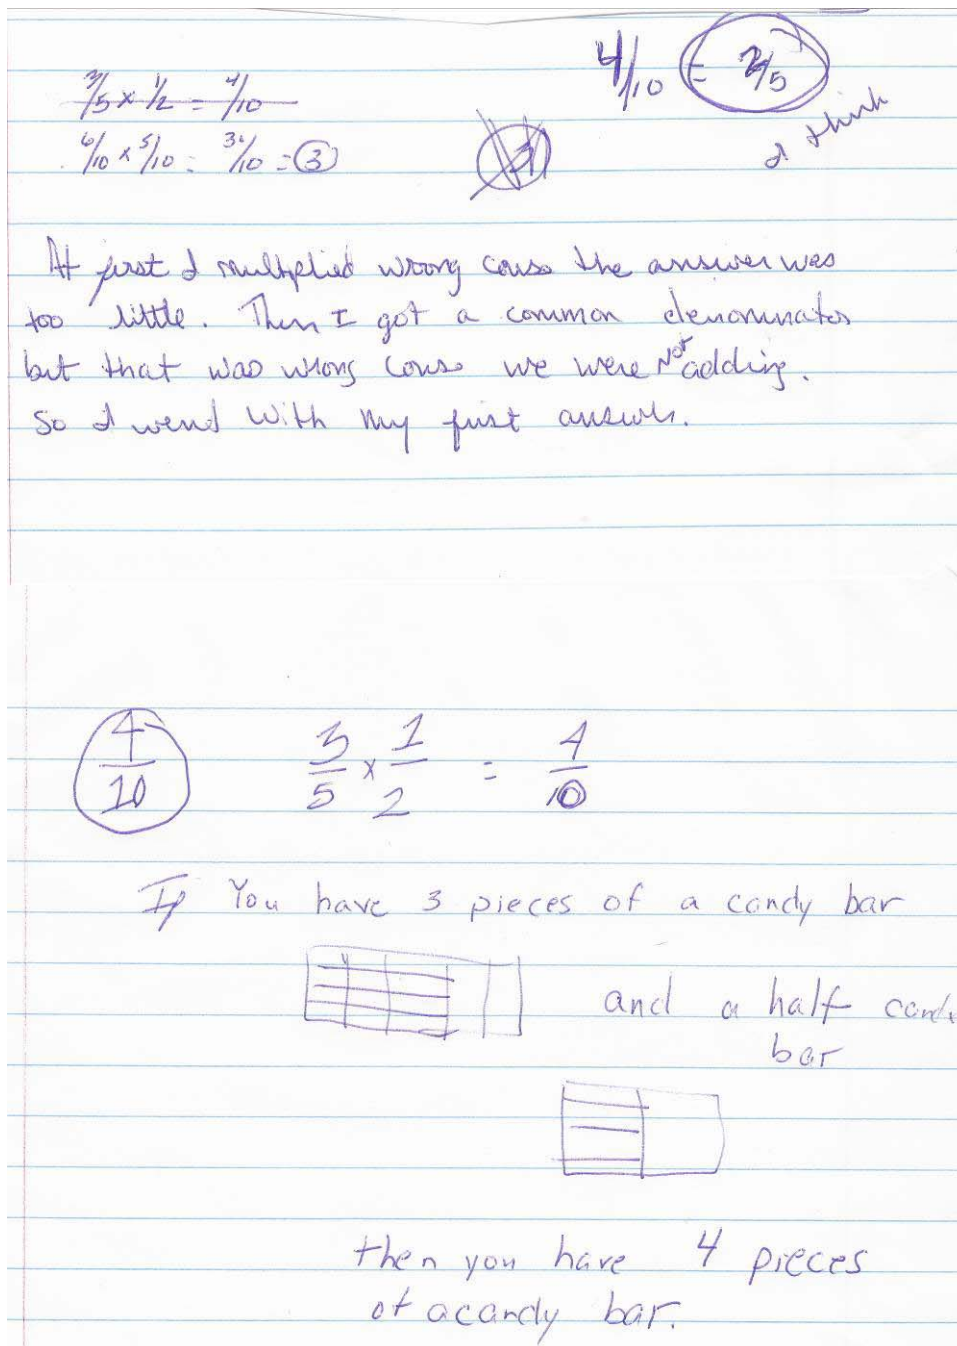 3/5 × 1/2 = 4/10
4/10 = 2/5
I think
6/10 × 5/10 = 30/10 = 3
3
At first I multiplied wrong cause the answer was
too little. Then I got a common denominator
but that was wrong cause we were Not adding.
So I wend with my first answer.
4/10
3/5 × 1/2 = 4/10
If You have 3 pieces of a candy bar
and a half candy
bar
then you have 4 pieces
of a candy bar.